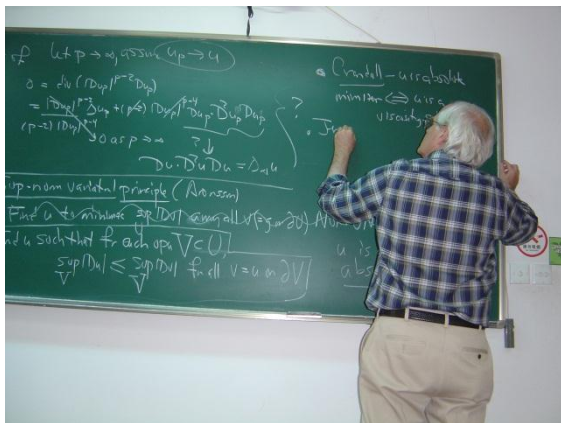 let p → ∞, assume u_p → u
0 = div(|Du_p|^{p-2} Du_p)
= |Du_p|^{p-2} Δu_p + (p-2) |Du_p|^{p-4} Du_p · D²u_p Du_p
(p-2) |Du_p|^{p-4}
→ 0 as p → ∞
? ↓
Du · D²u Du = Δ_∞ u
?
Sup-norm variational principle (Aronsson)
Find u to minimize sup|Du| among all v (= g on ∂U)
u such that for each open V ⊂ U,
sup|Du| ≤ sup|Dv| for all v = u on ∂V
V V
• Crandall – u is absolute
minimizer ⟺ u is a
viscosity
• J
u is
abs